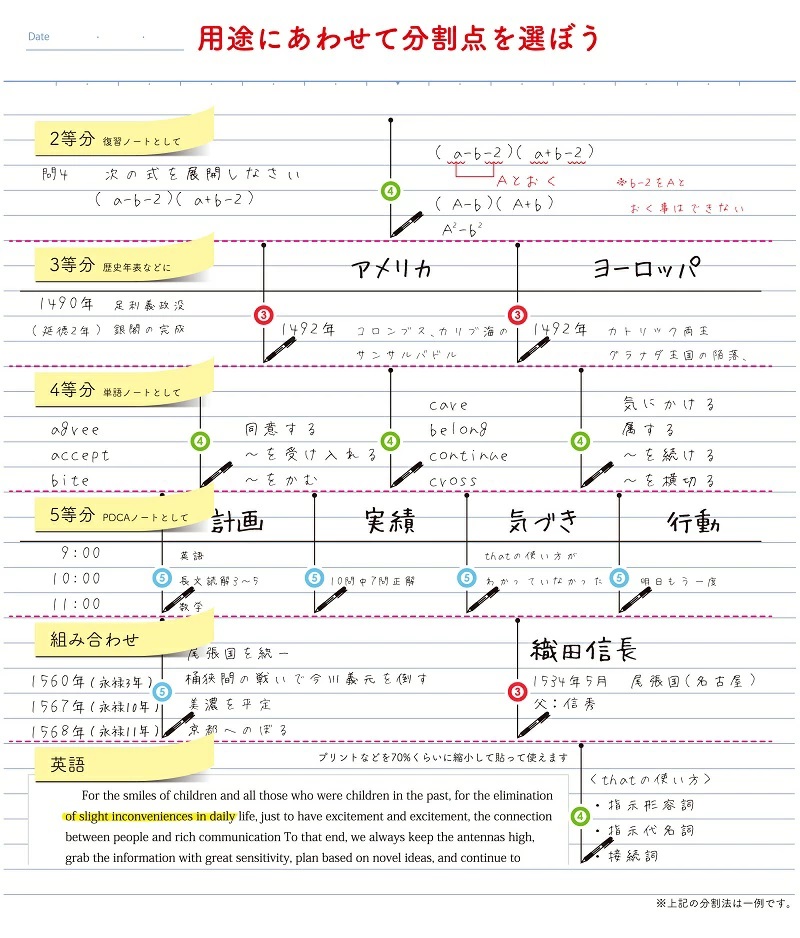 Date ・ ・
用途にあわせて分割点を選ぼう
2等分 復習ノートとして
問4 次の式を展開しなさい
(a-b-2)(a+b-2)
4
(a-b-2)(a+b-2)
Aとおく
(A-b)(A+b)
A²-b²
※b-2をAと
おく事はできない
3等分 歴史年表などに
アメリカ
ヨーロッパ
1490年 足利義政没
(延徳2年) 銀閣の完成
3
1492年 コロンブス、カリブ海の
サンサルバドル
3
1492年 カトリック両王
グラナダ王国の陥落、
4等分 単語ノートとして
agree
accept
bite
4
同意する
〜を受け入れる
〜をかむ
4
care
belong
continue
cross
4
気にかける
属する
〜を続ける
〜を横切る
5等分 PDCAノートとして
計画
実績
気づき
行動
9:00
10:00
11:00
5
英語
長文読解3〜5
数学
5
10問中7問正解
5
thatの使い方が
わかっていなかった
5
明日もう一度
組み合わせ
1560年(永禄3年)
1567年(永禄10年)
1568年(永禄11年)
5
尾張国を統一
桶狭間の戦いで今川義元を倒す
美濃を平定
京都へのぼる
3
織田信長
1534年5月 尾張国(名古屋)
父:信秀
英語
プリントなどを70%くらいに縮小して貼って使えます
For the smiles of children and all those who were children in the past, for the elimination
of slight inconveniences in daily life, just to have excitement and excitement, the connection
between people and rich communication To that end, we always keep the antennas high,
grab the information with great sensitivity, plan based on novel ideas, and continue to
4
〈thatの使い方〉
・指示形容詞
・指示代名詞
・接続詞
※上記の分割法は一例です。